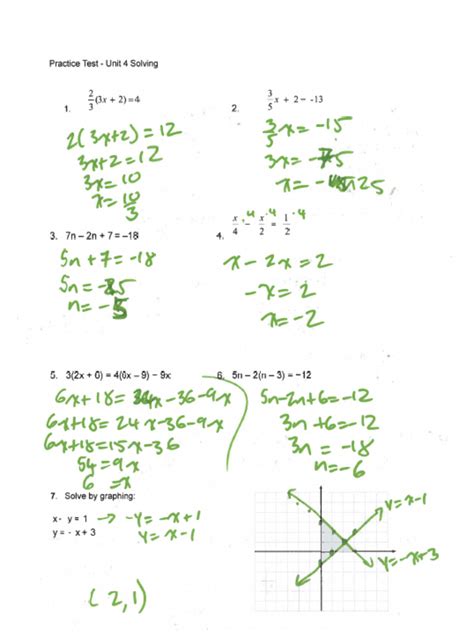 Practice Test - Unit 4 Solving
1. 2/3(3x + 2) = 4
2(3x+2) = 12
3x+2 = 12
3x = 10
x = 10/3
2. 3/5 x + 2 = -13
3/5 x = -15
3x = -75
x = -25
3. 7n – 2n + 7 = –18
5n + 7 = -18
5n = -25
n = -5
4. x/4 ·4 – x/2 ·4 = 1/2 ·4
x - 2x = 2
-x = 2
x = -2
5. 3(2x + 6) = 4(6x – 9) – 9x
6x + 18 = 24x - 36 - 9x
6x + 18 = 24x - 36 - 9x
6x + 18 = 15x - 36
54 = 9x
6 = x
6. 5n – 2(n – 3) = –12
5n - 2n + 6 = -12
3n + 6 = -12
3n = -18
n = -6
7. Solve by graphing:
x - y = 1 → -y = -x + 1
y = - x + 3
y = x - 1
(2,1)
y = x - 1
y = -x + 3